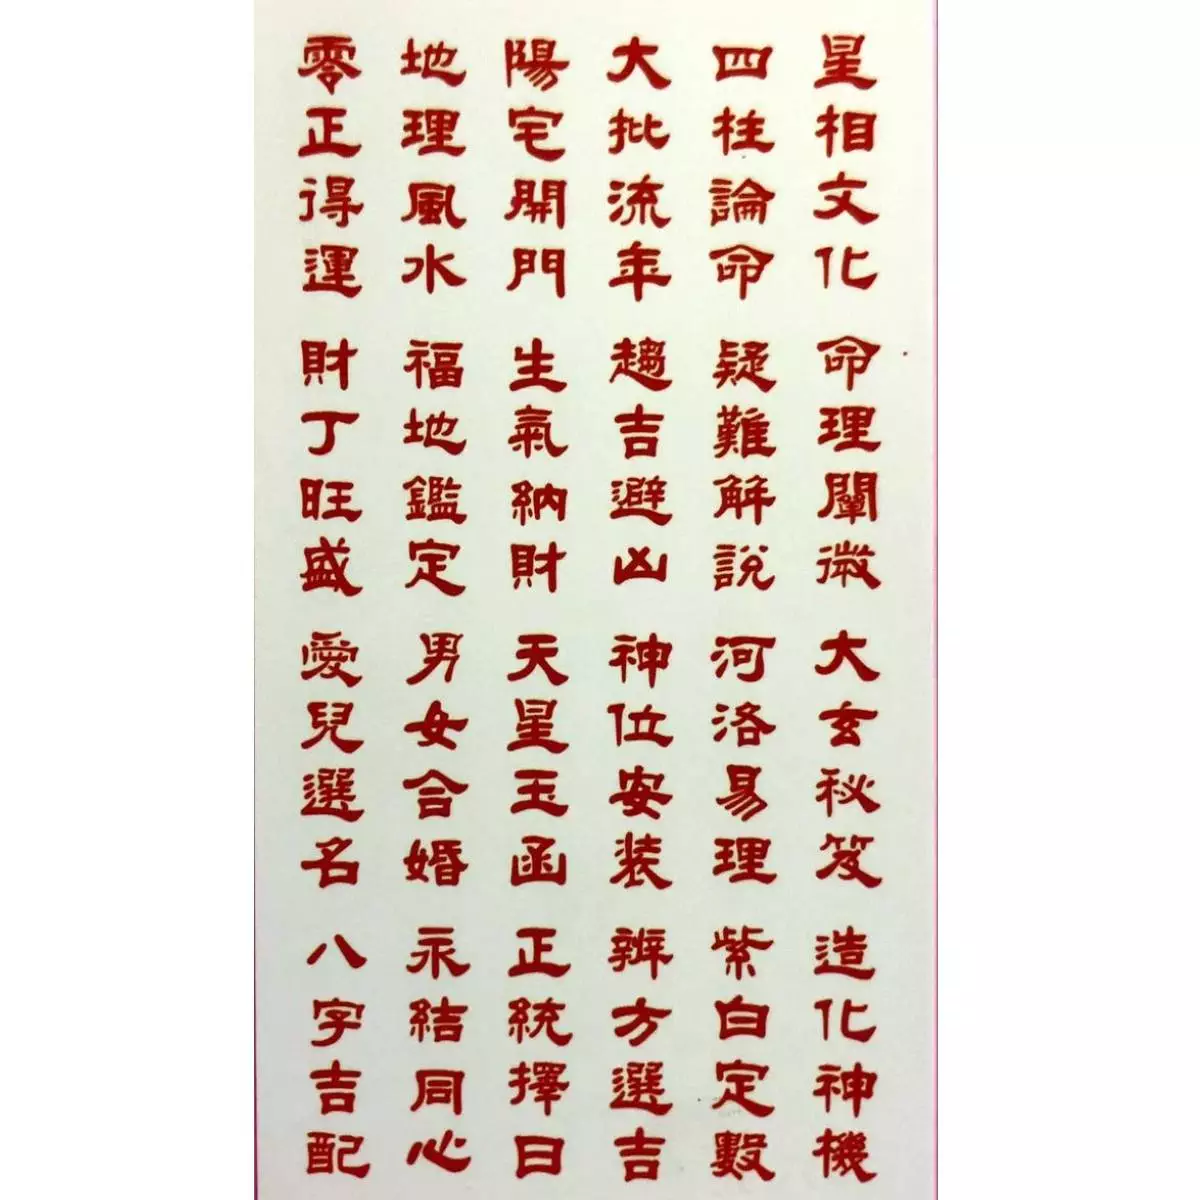 星相文化 命理闡微 大玄秘笈 造化神機
四柱論命 疑難解說 河洛易理 紫白定數
大批流年 趨吉避凶 神位安装 辨方選吉
陽宅開門 生氣納財 天星玉函 正統擇日
地理風水 福地鑑定 男女合婚 永結同心
零正得運 財丁旺盛 愛兒選名 八字吉配